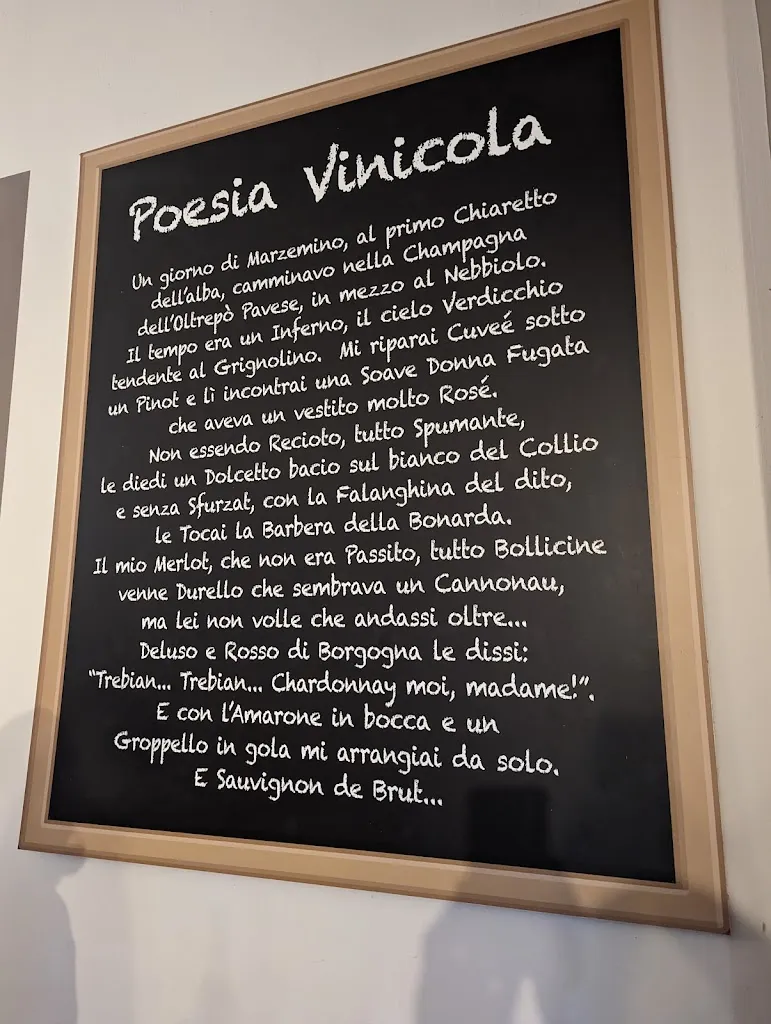 Poesia Vinicola
Un giorno di Marzemino, al primo Chiaretto
dell'alba, camminavo nella Champagna
dell'Oltrepò Pavese, in mezzo al Nebbiolo.
Il tempo era un Inferno, il cielo Verdicchio
tendente al Grignolino. Mi riparai Cuveé sotto
un Pinot e lì incontrai una Soave Donna Fugata
che aveva un vestito molto Rosé.
Non essendo Recioto, tutto Spumante,
le diedi un Dolcetto bacio sul bianco del Collio
e senza Sfurzat, con la Falanghina del dito,
le Tocai la Barbera della Bonarda.
Il mio Merlot, che non era Passito, tutto Bollicine
venne Durello che sembrava un Cannonau,
ma lei non volle che andassi oltre...
Deluso e Rosso di Borgogna le dissi:
"Trebian... Trebian... Chardonnay moi, madame!".
E con l'Amarone in bocca e un
Groppello in gola mi arrangiai da solo.
E Sauvignon de Brut...